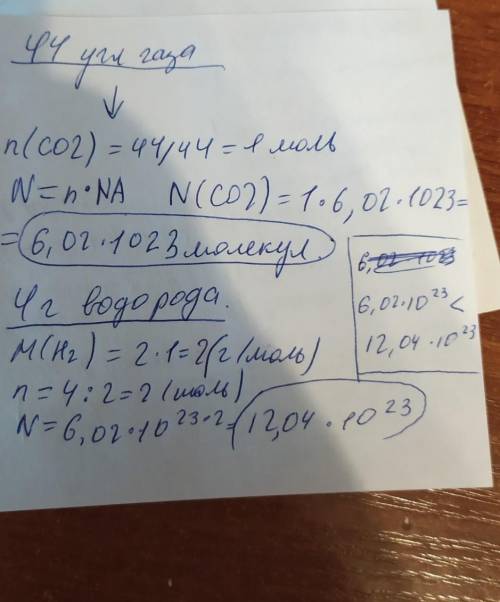 44 угл газа
n(CO2) = 44/44 = 1 моль
N = n·NA N(CO2) = 1·6,02·1023=
= 6,02·1023 молекул.
6,02·1023
6,02·10²³ <
12,04·10²³
4 г водорода.
M(H₂) = 2·1=2(г/моль)
n = 4:2=2(моль)
N = 6,02·10²³·² = 12,04·10²³